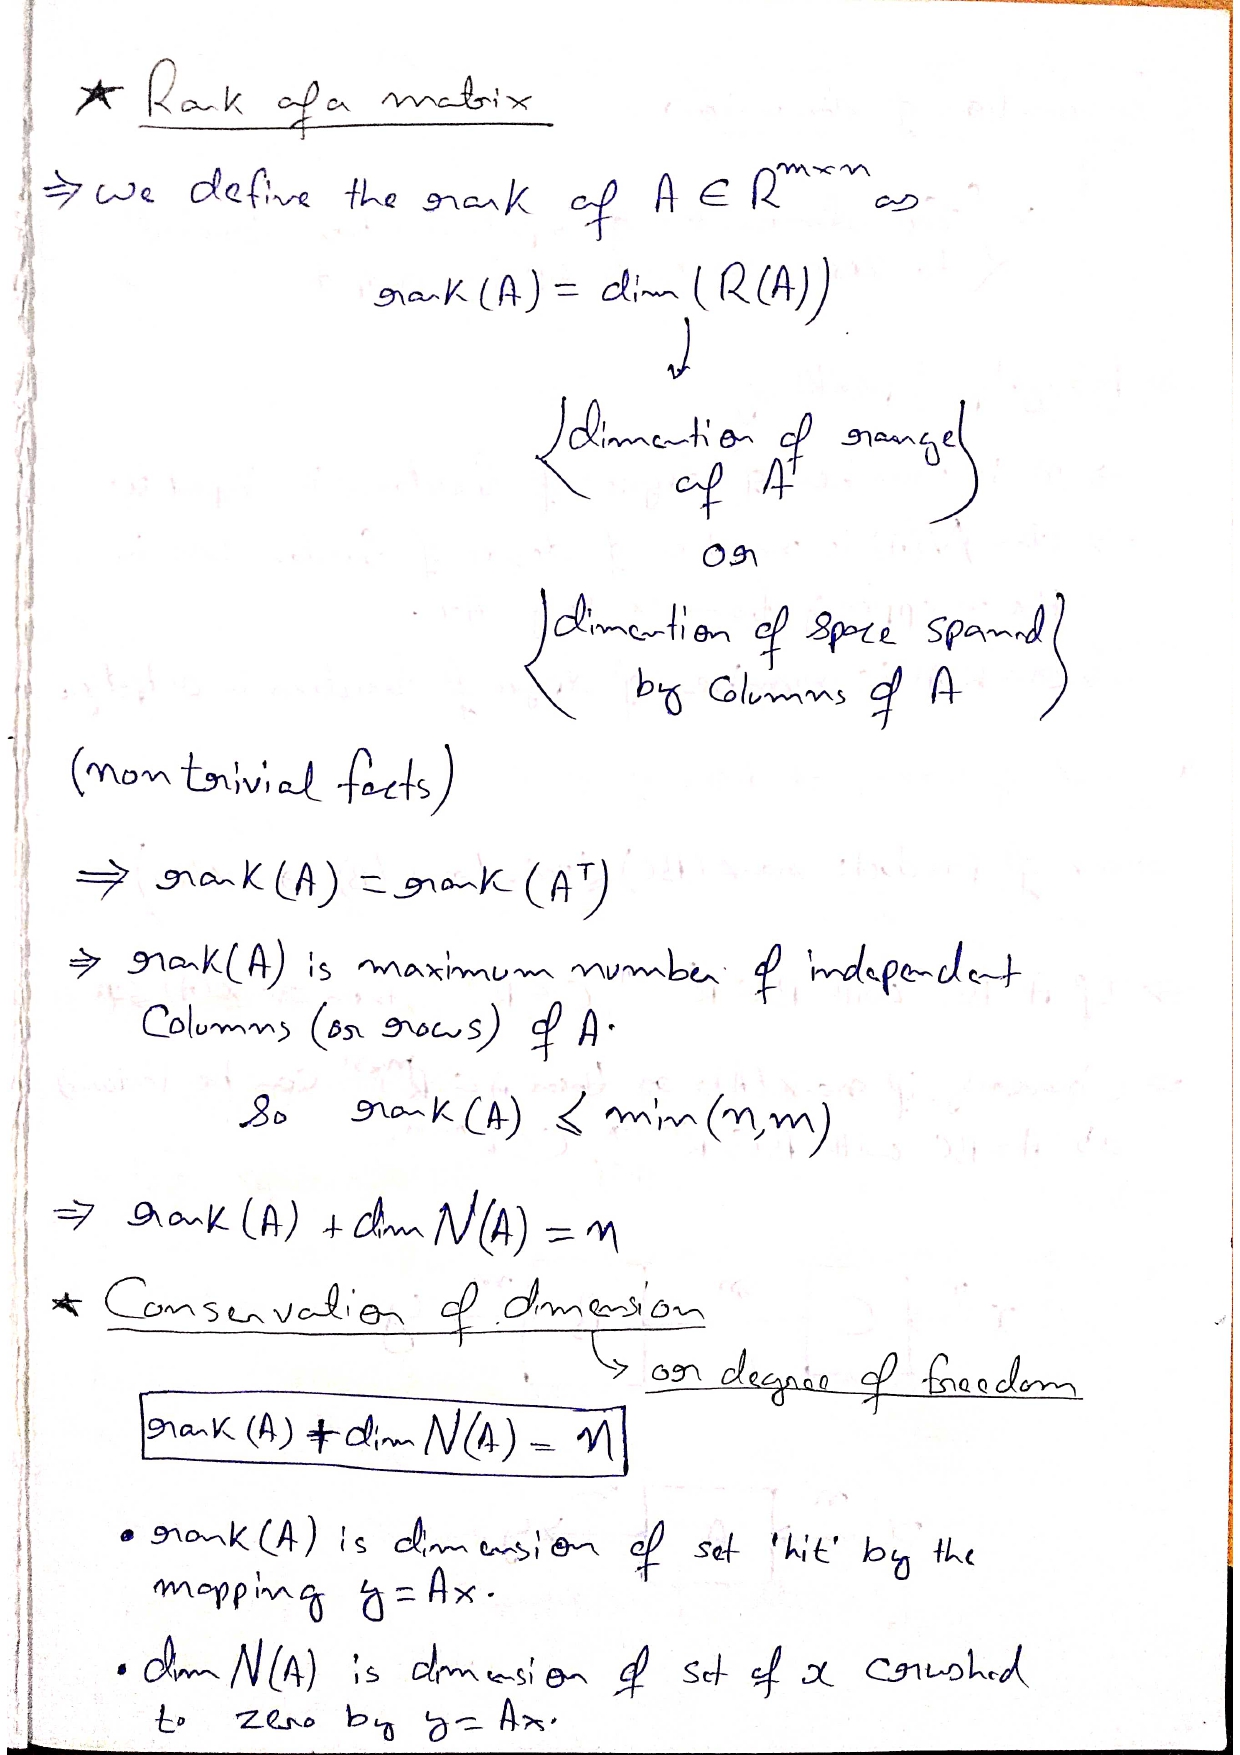 ★ Rank of a matrix
⇒ we define the rank of A ∈ R^{m×n} as
rank(A) = dim(R(A))
↓
{dimention of range
of A}
or
{dimention of space spannd
by Columns of A}
(non trivial facts)
⇒ rank(A) = rank(A^T)
⇒ rank(A) is maximum number of independent
Columns (or rows) of A.
So rank(A) ≤ min(n,m)
⇒ rank(A) + dim N(A) = n
★ Conservation of dimension
↳ or degree of freedom
rank(A) + dim N(A) = n
• rank(A) is dimension of set 'hit' by the
mapping y = Ax.
• dim N(A) is dimension of set of x crushed
to zero by y = Ax.